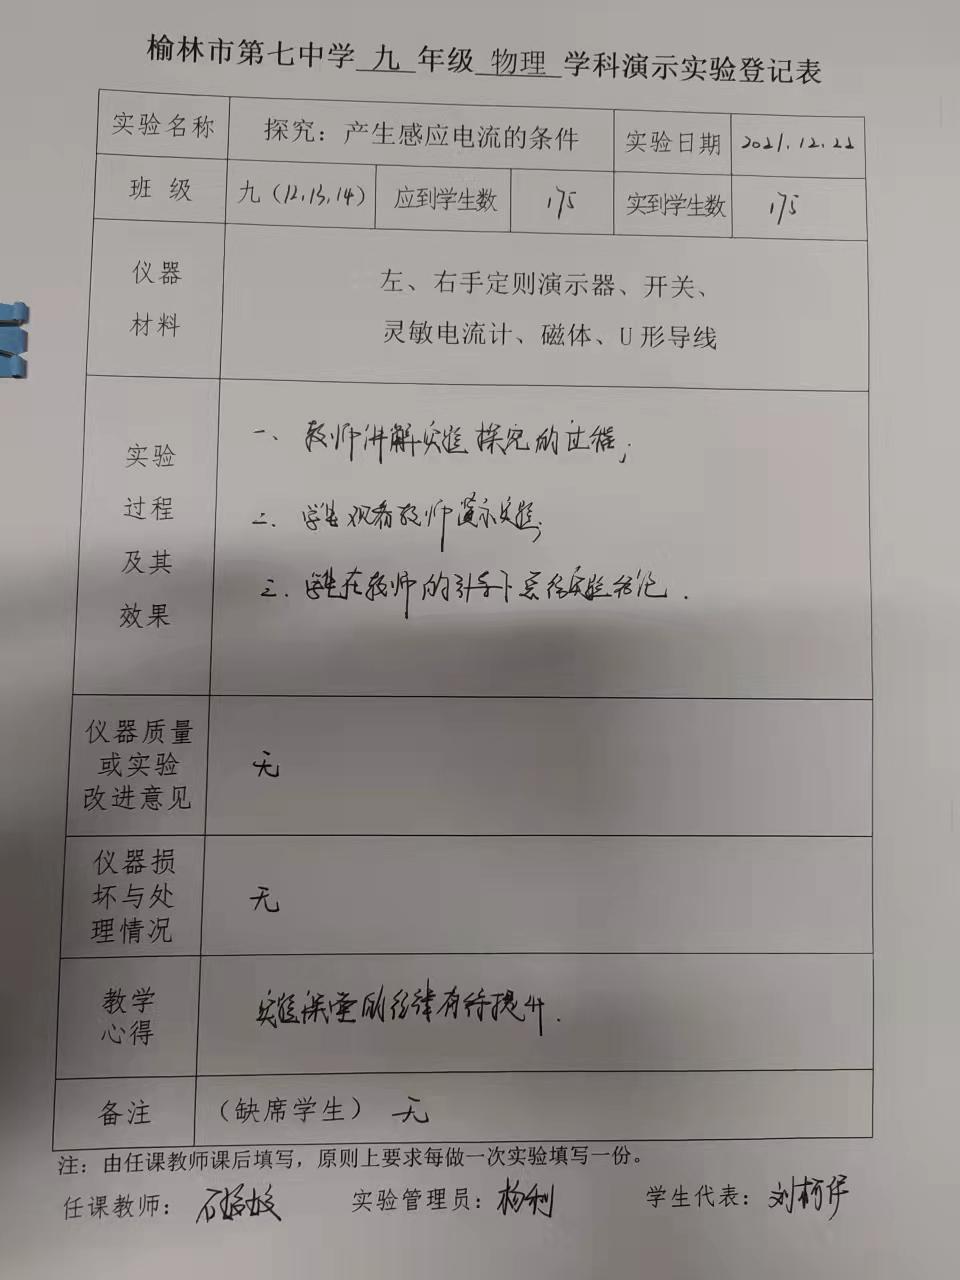 榆林市第七中学 九 年级 物理 学科演示实验登记表
实验名称 探究：产生感应电流的条件 实验日期 2021.12.22
班 级 九（12,13,14） 应到学生数 175 实到学生数 175
仪器
材料
左、右手定则演示器、开关、
灵敏电流计、磁体、U形导线
实验
过程
及其
效果
一、教师讲解实验探究的过程；
二、学生观看教师演示实验；
三、学生在教师的引导下总结实验结论.
仪器质量
或实验
改进意见
无
仪器损
坏与处
理情况
无
教学
心得
实验课堂的纪律有待提升.
备注 （缺席学生） 无
注：由任课教师课后填写，原则上要求每做一次实验填写一份。
任课教师： 实验管理员：杨利 学生代表：刘